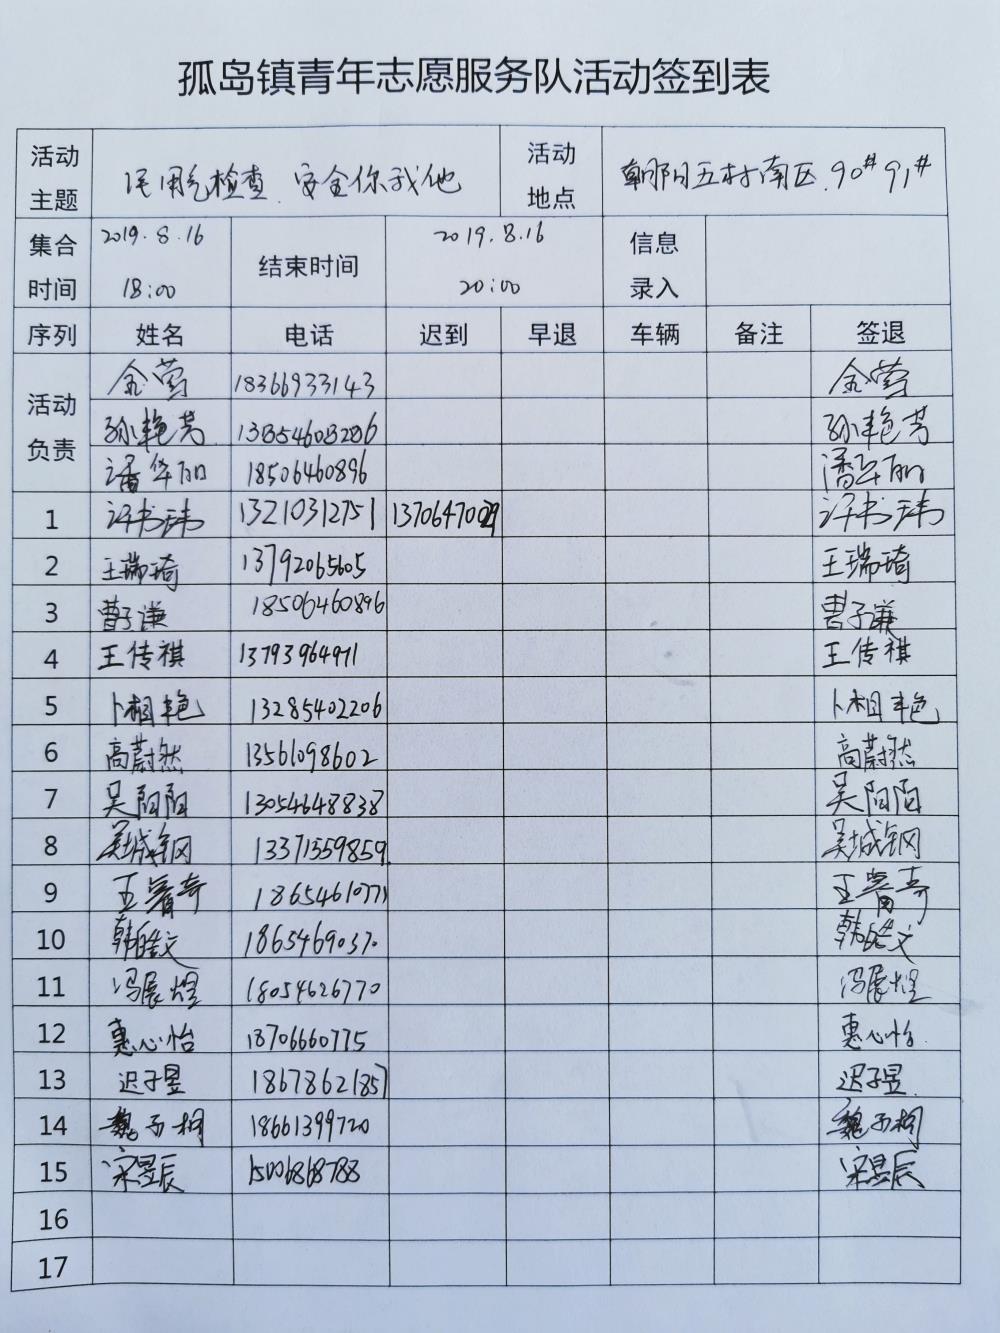 孤岛镇青年志愿服务队活动签到表
活动主题 民用气检查.安全你我他 活动地点 朝阳五村南区.90# 91#
集合时间 2019.8.16 18:00 结束时间 2019.8.16 20:00 信息录入
序列 姓名 电话 迟到 早退 车辆 备注 签退
活动负责
金莺 18366933143 金莺
孙艳芳 13854608286 孙艳芳
潘华丽 18506460896 潘华丽
1 许书玮 13210312751 许书玮
2 王瑞琦 13792065605 王瑞琦
3 曹子谦 18506460896 曹子谦
4 王传祺 13793964971 王传祺
5 卜相艳 13285402206 卜相艳
6 高蔚然 13561098602 高蔚然
7 吴阳阳 13054648838 吴阳阳
8 吴城钢 13371559859 吴城钢
9 王 奇 18654610771 王 奇
10 韩皓文 1865469037 韩皓文
11 冯展煜 18054626770 冯展煜
12 惠心怡 18706660775 惠心怡
13 迟子昱 18678621857 迟子昱
14 魏子桐 18661399720 魏子桐
15 宋昱辰 15006868788 宋昱辰
16
17